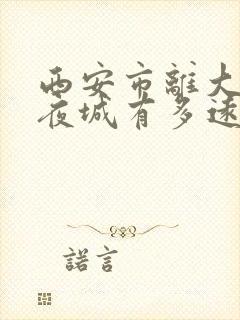 西安市離大
夜城有多遠
諾言